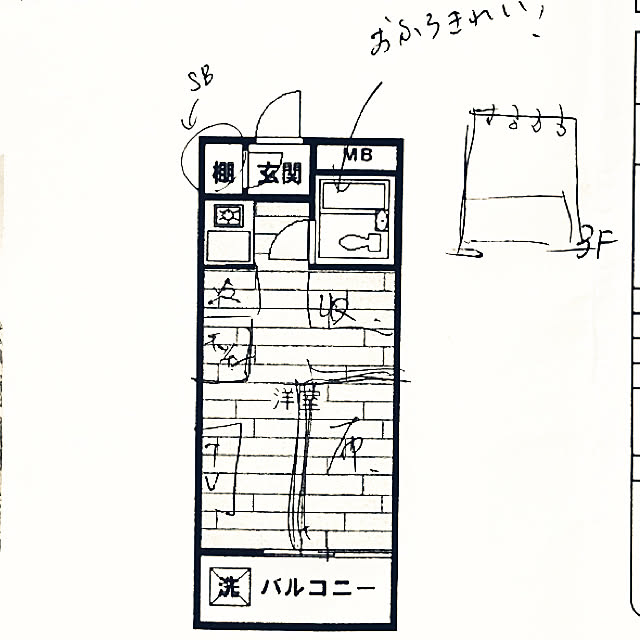 おふろきれい!
SB
MB
棚 玄関
3F
冷
収
洋室
TV
布
洗 バルコニー